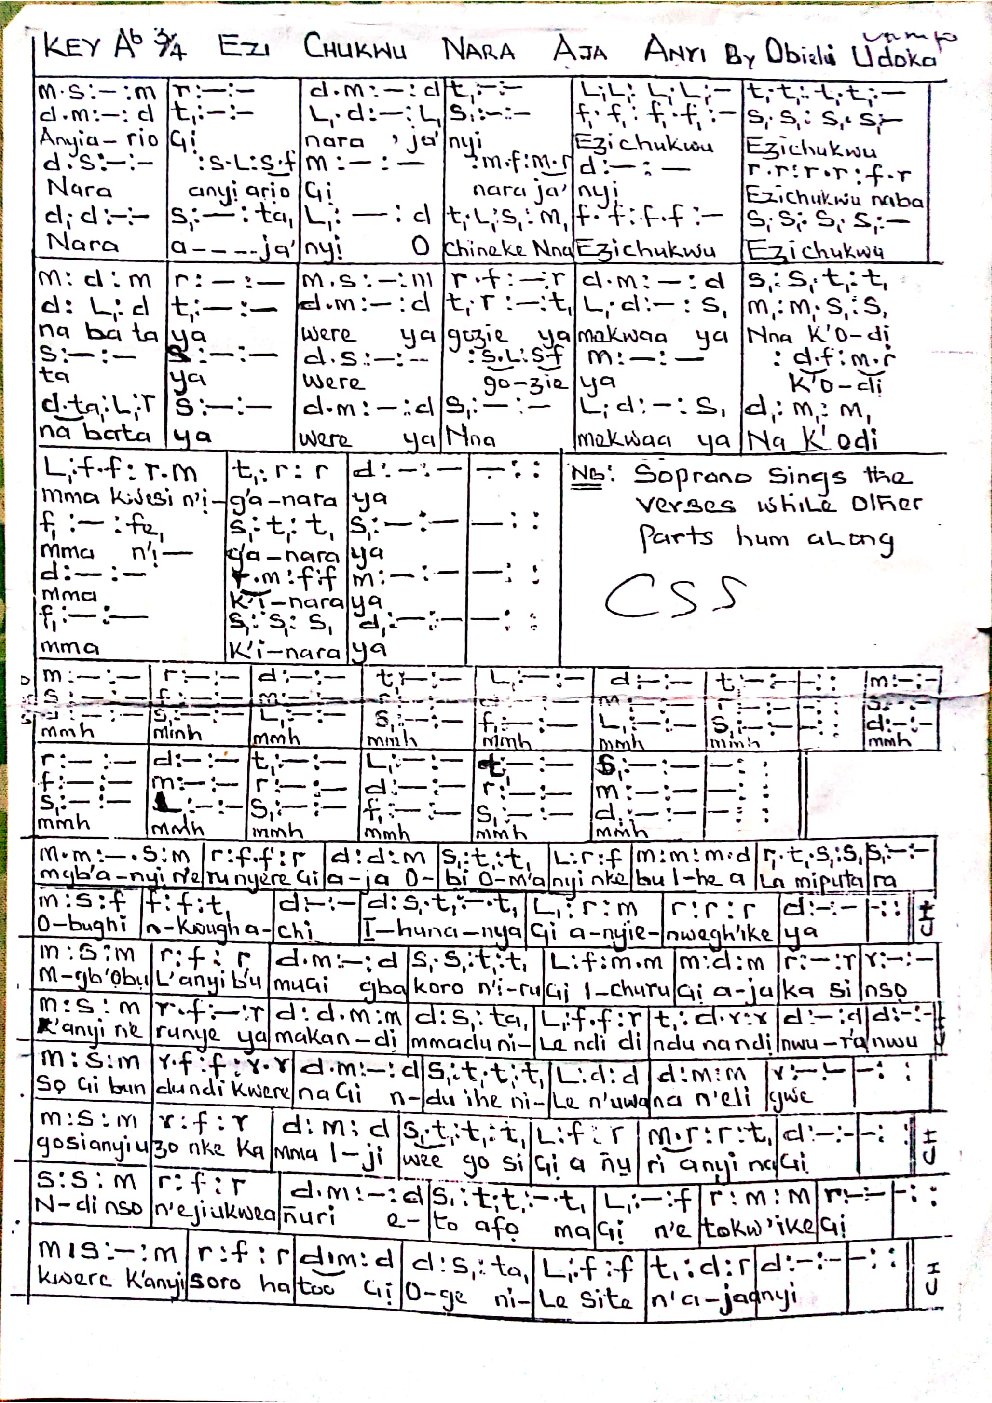 KEY Ab 3/4 EZI CHUKWU NARA AJA ANYI By Obielu Udoka
m.s:—:m | r:—:— | d.m:—:d | t,:—:— | L,.L,:L,.L,:— | t,.t,:t,.t,:—
d.m:—:d | t,:—:— | L,.d:—:L, | s,:—:— | f,.f,:f,.f,:— | s,.s,:s,.s,:—
Anyia-rio | Gi | nara 'ja' | nyi | Ezichukwu | Ezichukwu
d:s:—:— | :s.L:s.f | m:—:— | :m.f:m.r | d:—:— | r.r:r.r:f.r
Nara | anyi ario | Gi | nara ja' | nyi | Ezichukwu naba
d,d:—:— | s,:—:ta, | L,:—:d | t,:L,:s,:m, | f.f:f.f:— | s,.s,:s,.s,:—
Nara | a----ja' | nyi O | Chineke Nna | Ezichukwu | Ezichukwu
m:d:m | r:—:— | m.s:—:m | r.f:—:r | d.m:—:d | s,:s,.t,:t,
d:L,:d | t,:—:— | d.m:—:d | t,.r:—:t, | L,.d:—:s, | m,:m,.s,:s,
na ba ta | ya | were ya | gozie ya | makwaa ya | Nna K'O-di
s:—:— | s:—:— | d.s:—:— | :s.L:s.f | m:—:— | :d.f:m.r
ta | ya | were | go-zie | ya | K'O-di
d.ta,:L,:r | s:—:— | d.m:—:d | s,:—:— | L,.d:—:s, | d,:m,:m,
na bata | ya | were ya | Nna | makwaa ya | Na K'odi
L,:f.f:r.m | t,:r:r | d:—:— | —:: | NB: Soprano sings the
mma kwesi n'i- | g'a-nara | ya | verses while other
f,:—:fe, | s,:t,:t, | s,:—:— | —:: | Parts hum along
mma n'i— | g'a-nara | ya
d:—:— | r.m:f:f | m:—:— | —:: | CSS
mma | K'i-nara | ya
f,:—:— | s,:s,:s, | d,:—:— | —::
mma | K'i-nara | ya
m:—:— | r:—:— | d:—:— | t,:—:— | L,:—:— | d:—:— | t,:—:— | —:: | m:—:—
mmh | mmh | mmh | mmh | mmh | mmh | mmh | mmh
r:—:— | d:—:— | t,:—:— | L,:—:— | t,:—:— | s,:—:— | —::
f:—:— | m:—:— | r:—:— | d:—:— | r:—:— | m:—:— | —::
s,:—:— | L:—:— | s,:—:— | f,:—:— | s,:—:— | d,:—:— | —::
mmh | mmh | mmh | mmh | mmh | mmh
m.m:—.s:m | r:f.f:r | d:d:m | s,:t,:t, | L,:r:f | m:m:m.d | r.t,:s,:s, | s,:—:—
mgb'a-nyi n'e | runyere Gi | a-ja O- | bi O-m'a | nyi nke | bu I-he a | La miputa | ra
m:s:f | f:f:t, | d:—:— | d:s,.t,:—.t, | L,:r:m | r:r:r | d:—:— | —:: | CH
O-bughi | n-kwugha- | chi | I-huna-nya | Gi a-nyie- | nwegh'ike | ya
m:s:m | r:f:r | d.m:—:d | s,.s,:t,:t, | L,:f:m.m | m:d:m | r:—:r | r:—:—
M-gb'obu | L'anyi b'u | muGi gba | koro n'i-ru | Gi I-churu | Gi a-ja | ka si | nso
m:s:m | r.f:—:r | d:d.m:m | d:s,:ta, | L,:f.f:r | t,:d.r:r | d:—:d | d:—:—
K'anyi ne | runye ya | makan-di | mmadu ni- | Le ndi di | ndu nandi | nwu-r'a | nwu
m:s:m | r.f:f:r.r | d.m:—:d | s,:t,.t,:t, | L,:d:d | d:m:m | r:—:— | —::
So Gi bun | dundi kwere | na Gi n- | du ihe ni- | Le n'uwa | na n'eli | gwe
m:s:m | r:f:r | d:m:d | s,.t,:t,:t, | L,:f:r | m.r:r:t, | d:—:— | —:: | CH
gosianyiu | zo nke ka | mma I-ji | wee go si | Gi a ñu | ri anyi na | Gi
s:s:m | r:f:r | d.m:—:d | s,:t,.t,:—.t, | L,:—:f | r:m:m | r:—:— | —::
N-di nso | n'ejiukwea | ñuri e- | to afo ma | Gi n'e | tokw'ike | Gi
m.s:—:m | r:f:r | d.m:d | d:s,:ta, | L,:f:f | t,:d:r | d:—:— | —:: | CH
kwere K'anyi | soro ha | too Gi | O-ge ni- | Le site | n'a-ja | anyi